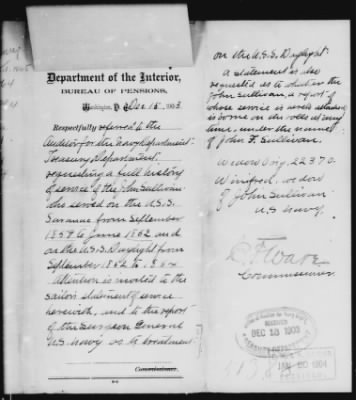 Department of the Interior,
BUREAU OF PENSIONS,
Washington, D. C., Dec 15, 1903
Respectfully referred to the
Auditor for the Navy Department
Treasury Department,
requesting a full history
of service of the John Sullivan
who served on the U.S.S.
Saranac from September
1857 to June 1862 and
on the U.S.S. Daylight from
September 1862 to 1864
Attention is invited to the
sailor's statement of service
herewith, and to the report
of the Surgeon General
U.S. Navy as to enrolment.
Commissioner.
on the U.S.S. Daylight.
A statement is also
requested as to whether the
John Sullivan, a report of
whose service is herewith attached
is borne on the rolls at any
time, under the name
of John F. Sullivan.
Widow Orig. 22370.
Winifred, widow
of John Sullivan
U.S. Navy.
Ware
Commissioner
RECEIVED
DEC 18 1903
JAN 20 1904